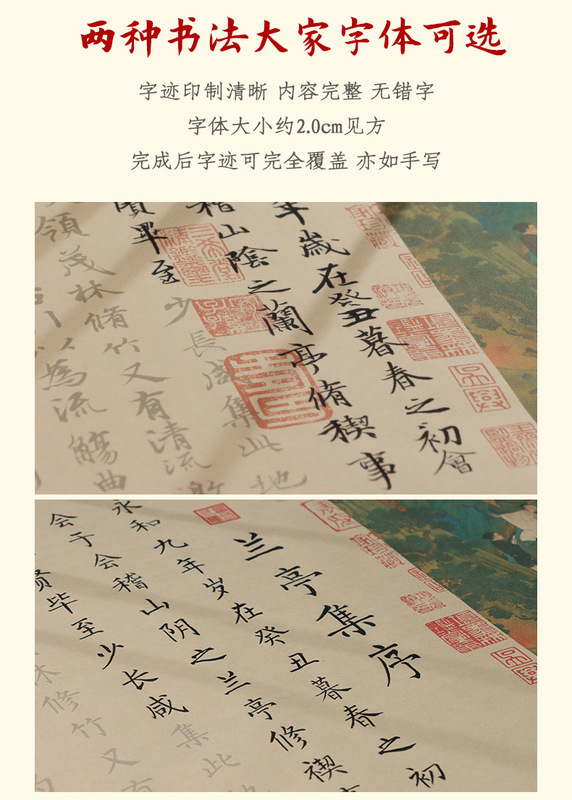 两种书法大家字体可选
字迹印制清晰 内容完整 无错字
字体大小约2.0cm见方
完成后字迹可完全覆盖 亦如手写
年歲在癸丑暮春之初會
稽山陰之蘭亭脩稧事
畢至少長咸集此地
領茂林脩竹又有清流激
以為流觴曲
兰亭集序
永和九年岁在癸丑暮春之初
会于会稽山阴之兰亭修禊
贤毕至少长咸集此
林修竹又有